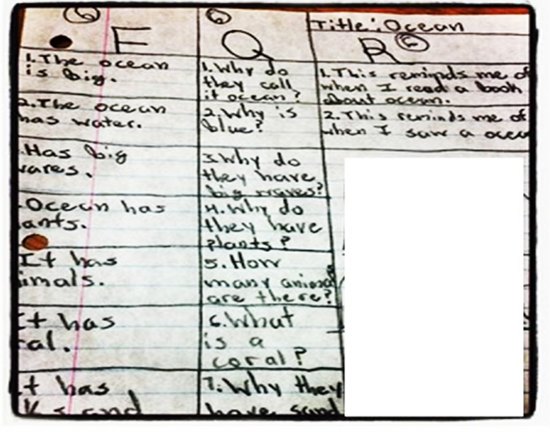 Title: Ocean
6
F
1. The ocean
is big.
2. The ocean
has water.
Has big
Ocean has
ants.
It has
imals.
It has
al.
It has
sand
6
Q
1. Why do
they call
it ocean?
2. Why is
blue?
3. Why do
they have
big waves?
4. Why do
they have
plants?
5. How
many animals
are there?
6. What
is a
coral?
7. Why they
have sand
R
6
1. This reminds me of
when I read a book
about ocean.
2. This reminds me of
when I saw a ocea